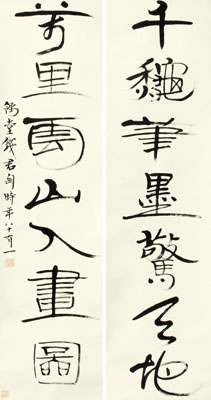 千龝筆墨驚天地
萬里雲山入畫圖
豫堂錢君匋時年八十有一